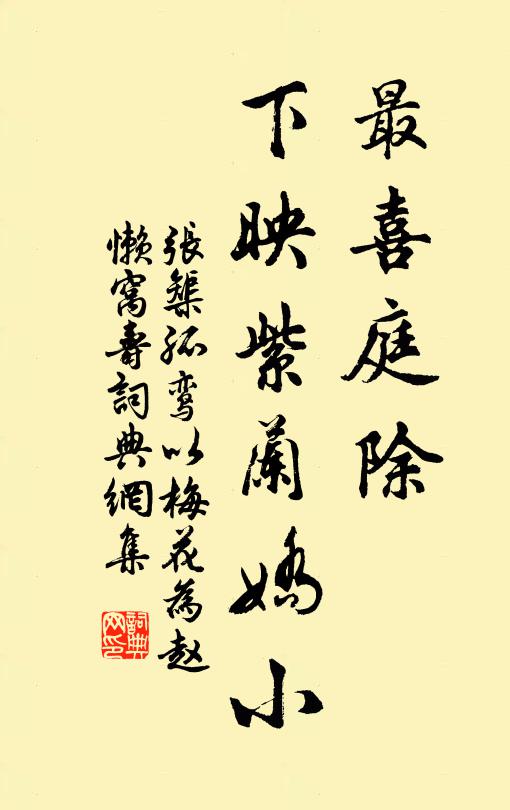 最喜庭除
下映紫蘭嬌小
張榘孤鸾以梅花為赵
懒窩壽詞典網集
詞典
网印